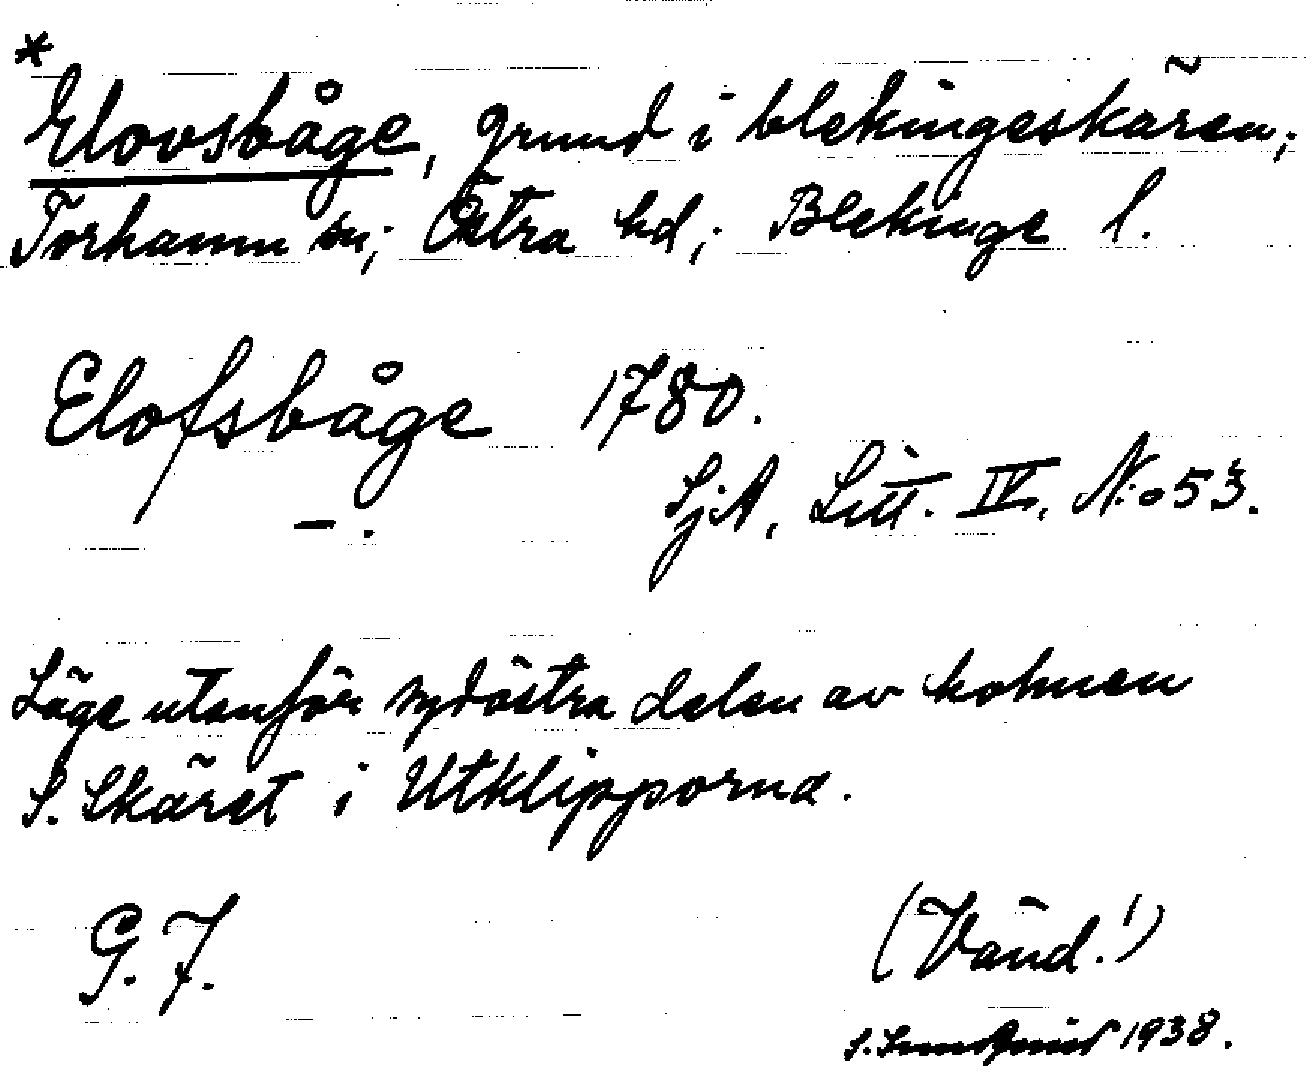 *
Elovsbåge, grund i blekingeskären;
Torhamn sn; Östra hd; Blekinge l.
Elofsbåge 1780.
SjA, Litt. IV, N:o 53.
– .
Läge utanför sydöstra delen av holmen
S. Skäret i Utklipporna.
G. F.
(Vänd!)
S. 1938.